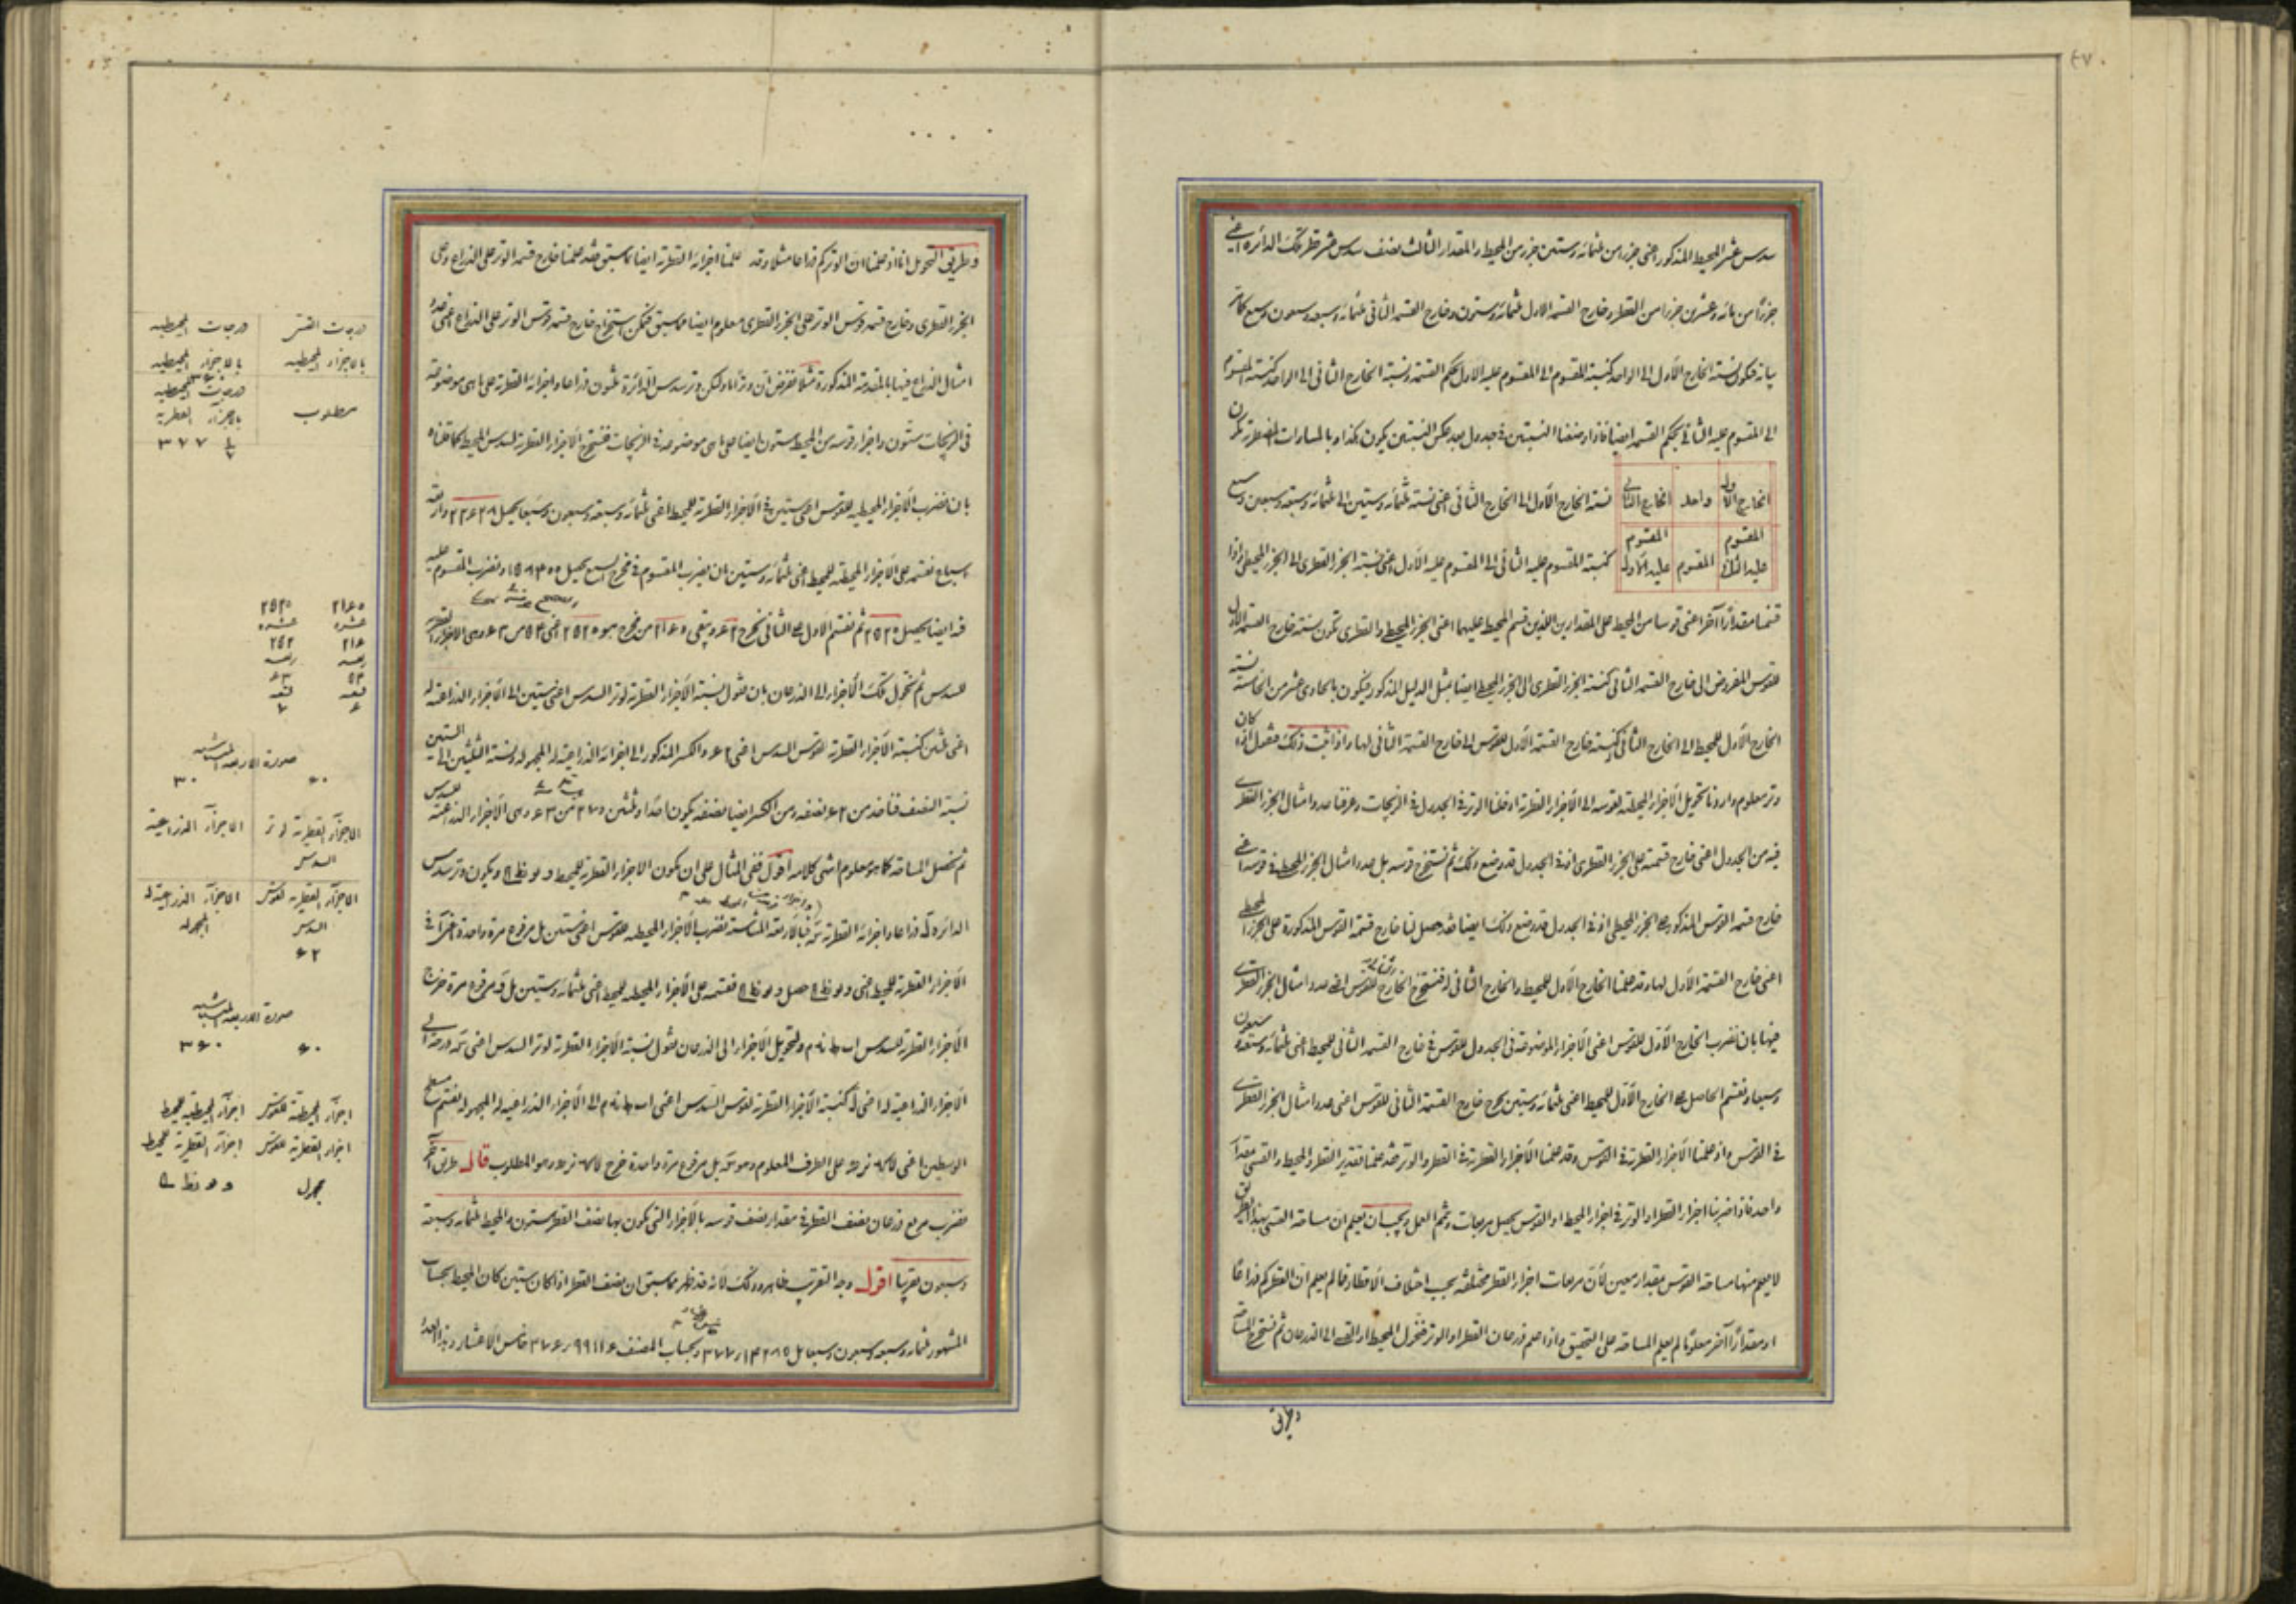 سدس عشر المحيط المذكور اعنى جزء من ثلثمائة وستين جزء من المحيط والمقدار الثالث نصف سدس عشر قطر تلك الدائرة اعنى
جزءًا من مائة وعشرين جزءا من القطر وخارج القسمة الاول ثلثمائة وستون وخارج القسمة الثانى ثلثمائة وسبعة وسبعون وسبع كما مر
بيانه فيكون نسبة الخارج الاول الى الواحد كنسبة المقسوم الى المقسوم عليه الاول بحكم القسمة ونسبة الخارج الثانى الى الواحد كنسبة المقسوم
الى المقسوم عليه الثانى بحكم القسمة ايضا فاذا وضعنا النسبتين فى جدول بعد عكس النسبتين يكون هكذا وبالمساوات المضطربة تكون
الخارج الاول واحد الخارج الثانى
نسبة الخارج الاول الى الخارج الثانى اعنى نسبة ثلثمائة وستين الى ثلثمائة وسبعة وسبعين وسبع
المقسوم عليه الثانى المقسوم المقسوم عليه الاول
كنسبة المقسوم عليه الثانى الى المقسوم عليه الاول اعنى نسبة الجزء القطرى الى الجزء المحيطى واذا
قسمنا مقدارًا آخر اعنى قوسا من المحيط على المقدارين اللذين قسم المحيط عليهما اعنى الجزء المحيطى والقطرى تكون نسبة خارج القسمة الاول
للقوس المفروض الى خارج القسمة الثانى كنسبة الجزء القطرى الى الجزء المحيطى ايضا بمثل الدليل المذكور فيكون بالحادى عشر من الخامسة نسبة
الخارج الاول للمحيط الى الخارج الثانى كنسبة خارج القسمة الاول للقوس الى خارج القسمة الثانى لها واذا ثبت ذلك فنقول اذا كان
وتر معلوم واردنا تحويل الاجزاء المحيطية لقوسه الى الاجزاء القطرية ادخلنا الوتر فى الجدول فى الزيجات وعرفنا عدد امثال الجزء القطرى
فيه من الجدول اعنى خارج قسمته على الجزء القطرى اذ فى الجدول قد وضع ذلك ثم نستخرج قوسه بل عدد امثال الجزء المحيطى فى قوسه اعنى
خارج قسمة القوس المذكور على الجزء المحيطى اذ فى الجدول قد وضع ذلك ايضا فقد حصل لنا خارج قسمة القوس المذكورة على الجزء المحيطى
اعنى خارج القسمة الاول لها وقد علمنا الخارج الاول للمحيط والخارج الثانى له فنستخرج الخارج للقوس عدد امثال الجزء القطرى
فيها بان نضرب الخارج الاول للقوس اعنى الاجزاء الموضوعة فى الجدول للقوس فى خارج القسمة الثانى للمحيط اعنى ثلثمائة وسبعة وسبعون
وسبعا ونقسم الحاصل على الخارج الاول للمحيط اعنى ثلثمائة وستين يخرج خارج القسمة الثانى للقوس اعنى عدد امثال الجزء القطرى
فى القوس واذ علمنا الاجزاء القطرية فى القوس وقد علمنا الاجزاء القطرية فى القطر والوتر فقد علمنا تقدير القطر والمحيط والقسى بمقدار
واحد فاذا ضربنا اجزاء القطر او الوتر فى اجزاء المحيط او القوس يحصل مربعات ويتم العمل ويجب ان يعلم ان مساحة القسى بهذا الطريق
لا يعلم منها مساحة القوس بمقدار معين لان مربعات اجزاء القطر مختلفة بحسب اختلاف الاقطار فما لم يعلم ان القطر كم ذراعًا
او مقدارًا آخر معلومًا لم يعلم المساحة على التحقيق واذا علم ذرعان القطر او الوتر فنحول المحيط او القسى الى الذرعان ثم نستخرج المساحة
وطريق
وطريق التحويل انا اذ علمنا ان الوتر كم ذراعا مثلا وقد علمنا اجزائه القطرية ايضا كما سبق فقد علمنا خارج قسمة الوتر على الذراع وعلى
الجزء القطرى وخارج قسمة قوس الوتر على الجزء القطرى معلوم ايضا مما سبق فيمكن استخراج خارج قسمة قوس الوتر على الذراع اعنى عدد
امثال الذراع فيها بالمقدمة المذكورة مثلا نفرض ان وترًا ما وليكن وتر سدس الدائرة ثلثون ذراعا واجزائه القطرية على ما هى موضوعة
فى الزيجات ستون واجزاء قوسه من المحيط ستون ايضا على ما هى موضوعة فى الزيجات فنستخرج الاجزاء القطرية لسدس المحيط كما قلناه
بان نضرب الاجزاء المحيطية للقوس اعنى ستين فى الاجزاء القطرية للمحيط اعنى ثلثمائة وسبعة وسبعون وسبعا يحصل ٢٢٦٢٨ واربعة
اسباع نقسمه على الاجزاء المحيطية للمحيط اعنى ثلثمائة وستين بان نضرب المقسوم فى مخرج السبع يحصل ١٥٨٤٠٠ ونضرب المقسوم عليه
فيه ايضا يحصل ٢٥٢٠ ثم نقسم الاول على الثانى نخرج ٦٢ ويبقى ٢١٦٠ من مخرج هو ٢٥٢٠ اعنى ٥٤ من ٦٣ وهى الاجزاء القطرية
للسدس ثم نحول تلك الاجزاء الى الذرعان بان نقول نسبة الاجزاء القطرية لوتر السدس اعنى ستين الى الاجزاء الذراعية له
اعنى ثلثين كنسبة الاجزاء القطرية لقوس السدس اعنى ٦٢ والكسر المذكور الى اجزائه الذراعية له المجهوله ونسبة الثلثين الى الستين
نسبة النصف فناخذ من ٦٢ نصفه ومن الكسر ايضا نصفه يكون احدا وثلثين و ٢٧ من ٦٣ وهى الاجزاء الذراعية للسدس
ثم نحصل المساحة كما هو معلوم انتهى كلامه اقول ففى المثال على ان يكون الاجزاء القطرية للمحيط ويكون وتر سدس
الدائرة ذراعا واجزائه القطرية فبالاربعة المتناسبة نضرب الاجزاء المحيطية للقوس اعنى ستين بل مرفوع مرة واحدة اعنى فى
الاجزاء القطرية للمحيط اعنى حصل نقسمه على الاجزاء المحيطية للمحيط اعنى ثلثمائة وستين بل مرفوع مرة خرج
الاجزاء القطرية للسدس ولتحويل الاجزاء الى الذرعان نقول نسبة الاجزاء القطرية لوتر السدس اعنى الى
الاجزاء الذراعية له اعنى كنسبة الاجزاء القطرية لقوس السدس اعنى الى الاجزاء الذراعية له المجهوله فنقسم مسطح
الوسطين اعنى على الطرف المعلوم وهو بل مرفوع مرة واحدة خرج وهو المطلوب قال طريق آخر
نضرب مربع ذرعان نصف القطر فى مقدار نصف قوسه بالاجزاء التى يكون بها نصف القطر ستون والمحيط ثلثمائة وسبعة
وسبعون تقريبا اقول وجه التقريب ظاهر وذلك لانه قد ظهر مما سبق ان نصف القطر اذا كان ستين كان المحيط بحساب
المشهور ثلثمائة وسبعة وسبعون وسبعا بل وبحساب المصنف خامس الاعشار وبهذا
درجات القسى درجات المحيطيه
بالاجزاء المحيطيه بالاجزاء المحيطيه
مطلوب
درجات المحيطيه
بالاجزاء القطرية
٣٧٧
٢١٦٠ ٢٥٢٠
عشره عشره
٢١٦ ٢٥٢
ربعه ربعه
٥٤ ٦٣
تسعه تسعه
٦ ٧
صورة الاربعة المتناسبه
٦٠ ٣٠
الاجزاء القطرية لوتر السدس الاجزاء الذراعية
الاجزاء القطرية لقوس السدس الاجزاء الذراعية له المجهوله
٦٢
صورة الاربعة المتناسبه
٦٠ ٣٦٠
اجزاء المحيطية للقوس اجزاء المحيطية للمحيط
اجزاء القطرية للقوس اجزاء القطرية للمحيط
مجهول